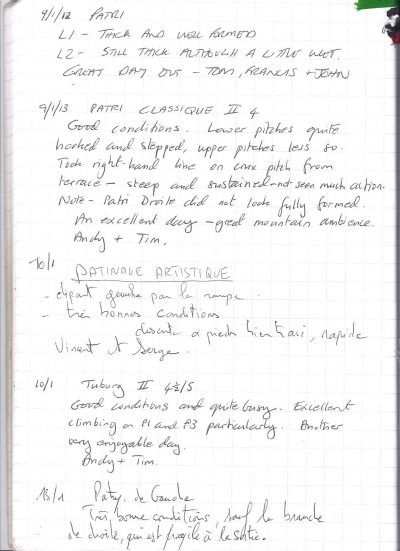 9/1/12 PATRI
L1 - THICK AND WELL FORMED
L2 - STILL THICK ALTHOUGH A LITTLE WET.
GREAT DAY OUT - TOM, FRANCIS + JOHN
9/1/13 PATRI CLASSIQUE II 4
Good conditions. Lower pitches quite
hooked and stepped, upper pitches less so.
Took right-hand line on crux pitch from
terrace - steep and sustained - not seen much action.
Note - Patri Droite did not look fully formed.
An excellent day - great mountain ambience.
Andy + Tim.
10/1 PATINAGE ARTISTIQUE
- départ gauche par la rampe.
- très bonnes conditions
descente à pieds, rapide
Vincent et Serge.
10/1 Tuborg II 4½/5
Good conditions and quite busy. Excellent
climbing on P1 and P3 particularly. Another
very enjoyable day.
Andy + Tim.
13/1 Patri de Gauche
Très bonne conditions, sauf la branche
de droite, qui est fragile à la sortie.